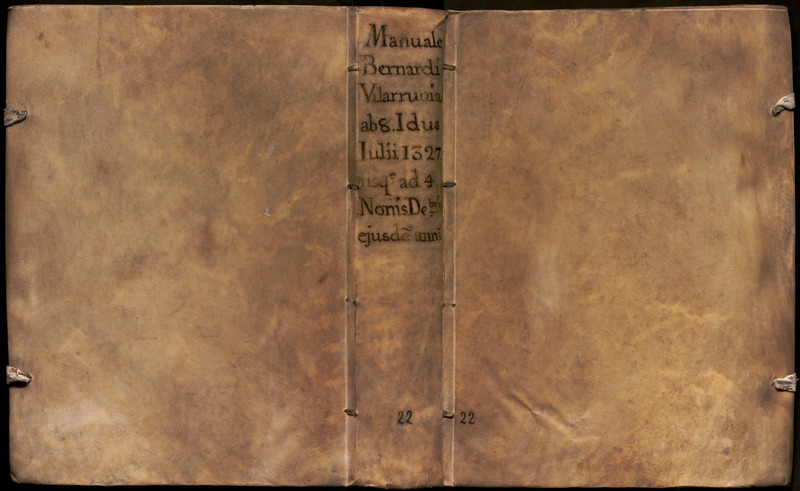 Manuale
Bernardi
Vilarrubia
ab 8. Idus
Iulii 1327
usqᵉ ad 4.
Nonis De.bris
ejusdē anni
22
22